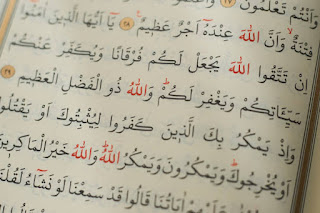 وَاَنْتُمْ تَعْلَمُونَ ﴿٢٧﴾
فِتْنَةٌ وَاَنَّ اللّٰهَ عِنْدَهُٓ اَجْرٌ عَظِيمٌ ﴿٢٨﴾ يَٓا اَيُّهَا الَّذِينَ اٰمَنُٓوا
اِنْ تَتَّقُوا اللّٰهَ يَجْعَلْ لَكُمْ فُرْقَانًا وَيُكَفِّرْ عَنْكُمْ
سَيِّـَٔاتِكُمْ وَيَغْفِرْ لَكُمْ وَاللّٰهُ ذُو الْفَضْلِ الْعَظِيمِ ﴿٢٩﴾
وَاِذْ يَمْكُرُ بِكَ الَّذِينَ كَفَرُوا لِيُثْبِتُوكَ اَوْ يَقْتُلُوكَ
اَوْ يُخْرِجُوكَ وَيَمْكُرُونَ وَيَمْكُرُ اللّٰهُ وَاللّٰهُ خَيْرُ الْمَاكِرِينَ
اٰيَاتُنَا قَالُوا قَدْ سَمِعْنَا لَوْ نَشَٓاءُ لَقُلْنَا